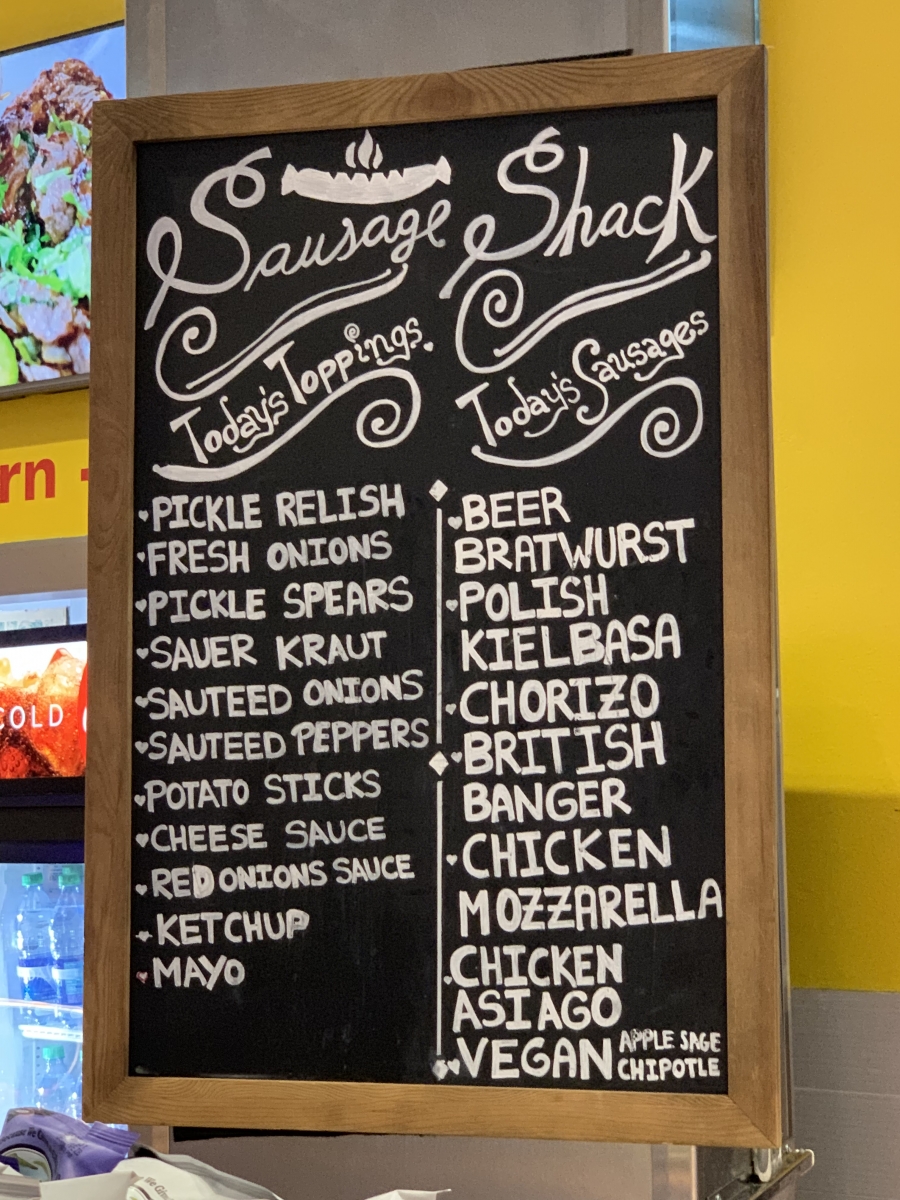 Sausage Shack
Today's Toppings
PICKLE RELISH
FRESH ONIONS
PICKLE SPEARS
SAUER KRAUT
SAUTEED ONIONS
SAUTEED PEPPERS
POTATO STICKS
CHEESE SAUCE
RED ONIONS SAUCE
KETCHUP
MAYO
Today's Sausages
BEER
BRATWURST
POLISH
KIELBASA
CHORIZO
BRITISH
BANGER
CHICKEN
MOZZARELLA
CHICKEN
ASIAGO
VEGAN APPLE SAGE
CHIPOTLE
rn -
COLD